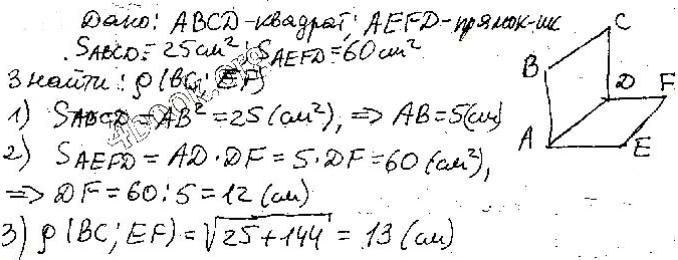 Дано: ABCD-квадрат; AEFD-прямок-ик
S_ABCD = 25 см²; S_AEFD = 60 см²
Знайти: ρ(BC; EF)
1) S_ABCD = AB² = 25 (см²), => AB = 5(см)
2) S_AEFD = AD · DF = 5 · DF = 60 (см²),
=> DF = 60 : 5 = 12 (см)
3) ρ(BC; EF) = √25+144 = 13 (см)
C
B
D
F
A
E